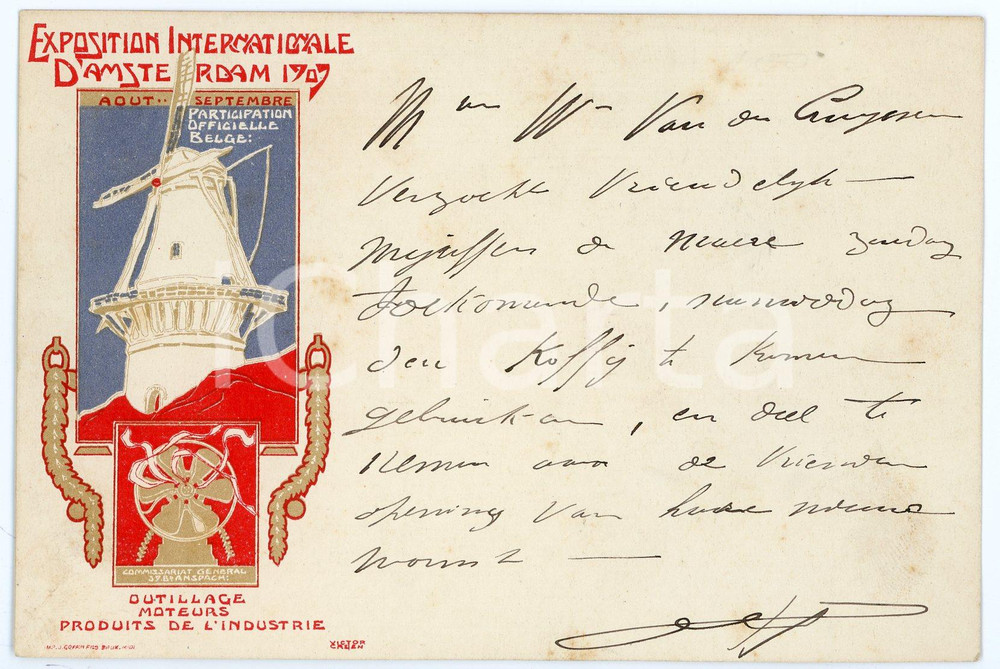 EXPOSITION INTERNATIONALE
D'AMSTERDAM 1909
AOUT·· SEPTEMBRE
PARTICIPATION
OFFICIELLE
BELGE:
COMMISSARIAT GENERAL
OUTILLAGE
MOTEURS
PRODUITS DE L'INDUSTRIE
VICTOR
CREEN
Van den
verzoekt vriendelijk
de zondag
toekomende, namiddag
den Koffij te komen
gebruiken, en deel te
nemen aan de
opening van hare nieuwe
woonst
iCharta